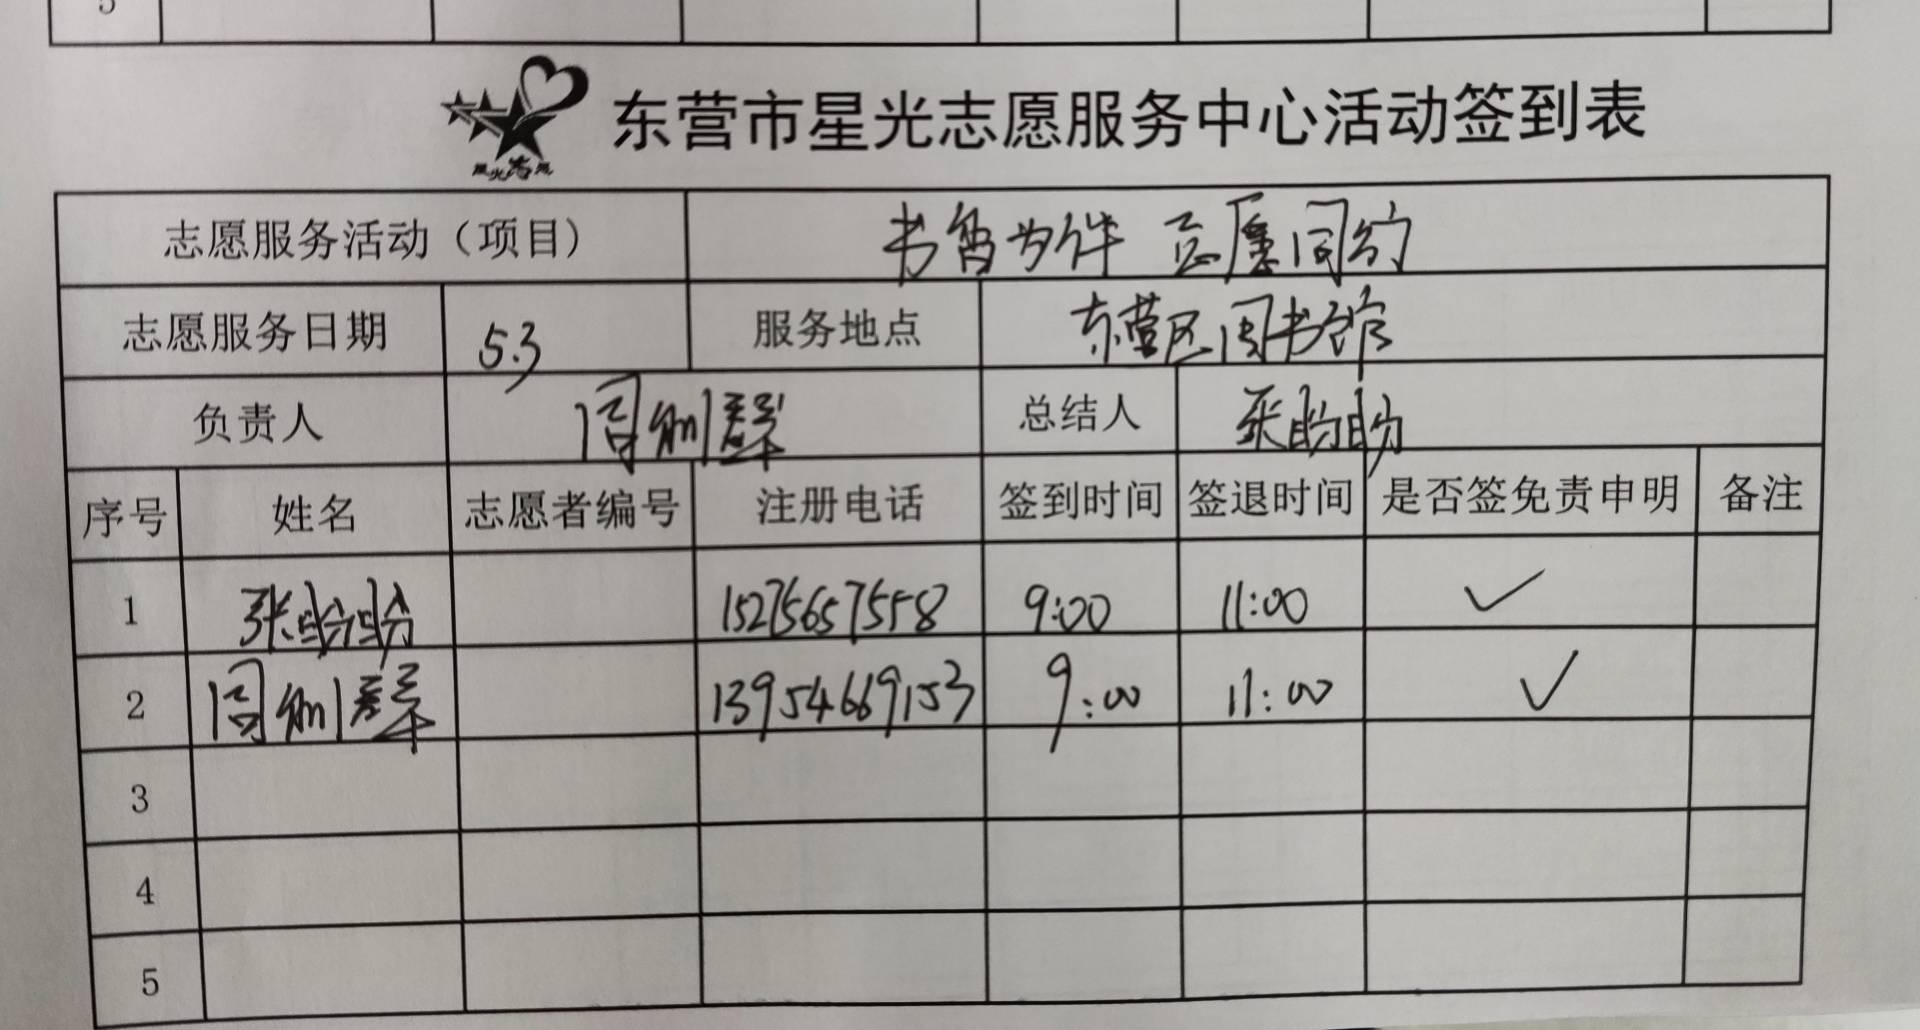 5
星光志愿
东营市星光志愿服务中心活动签到表
志愿服务活动（项目） 书香为伴 志愿同行
志愿服务日期 5.3 服务地点 东营区图书馆
负责人 总结人
序号 姓名 志愿者编号 注册电话 签到时间 签退时间 是否签免责申明 备注
1 张盼盼 15275657558 9:00 11:00 ✓
2 13954669153 9:00 11:00 ✓
3
4
5